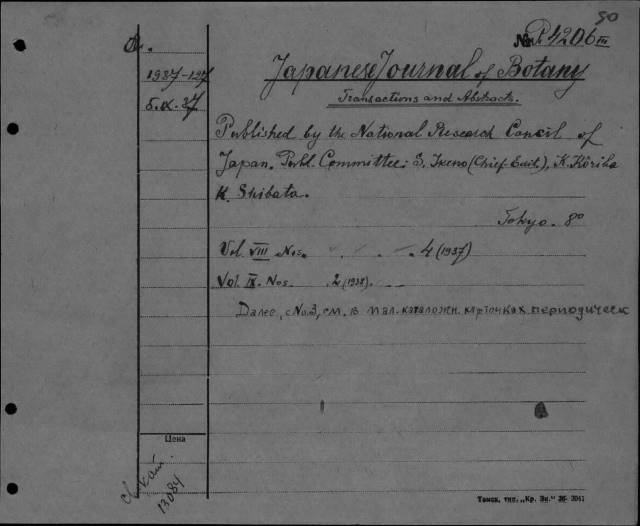 50
№ P.4206 III
1937-127
5.IX.37
Japanese Journal of Botany
Transactions and Abstracts.
Published by the National Research Concil of
Japan. Publ. Committee: S. Ikeno (Chief-Edit.), K. Kôriba
K. Shibata.
Tokyo. 8°
Vol. VIII Nos. . . . 4 (1937)
Vol. IX. Nos. . 2 (1938). . .
Далее, с No.3, см. в мал. каталожн. карточках периодическ
Цена
13084
Томск, тип. „Кр. Зн." 36- 2041